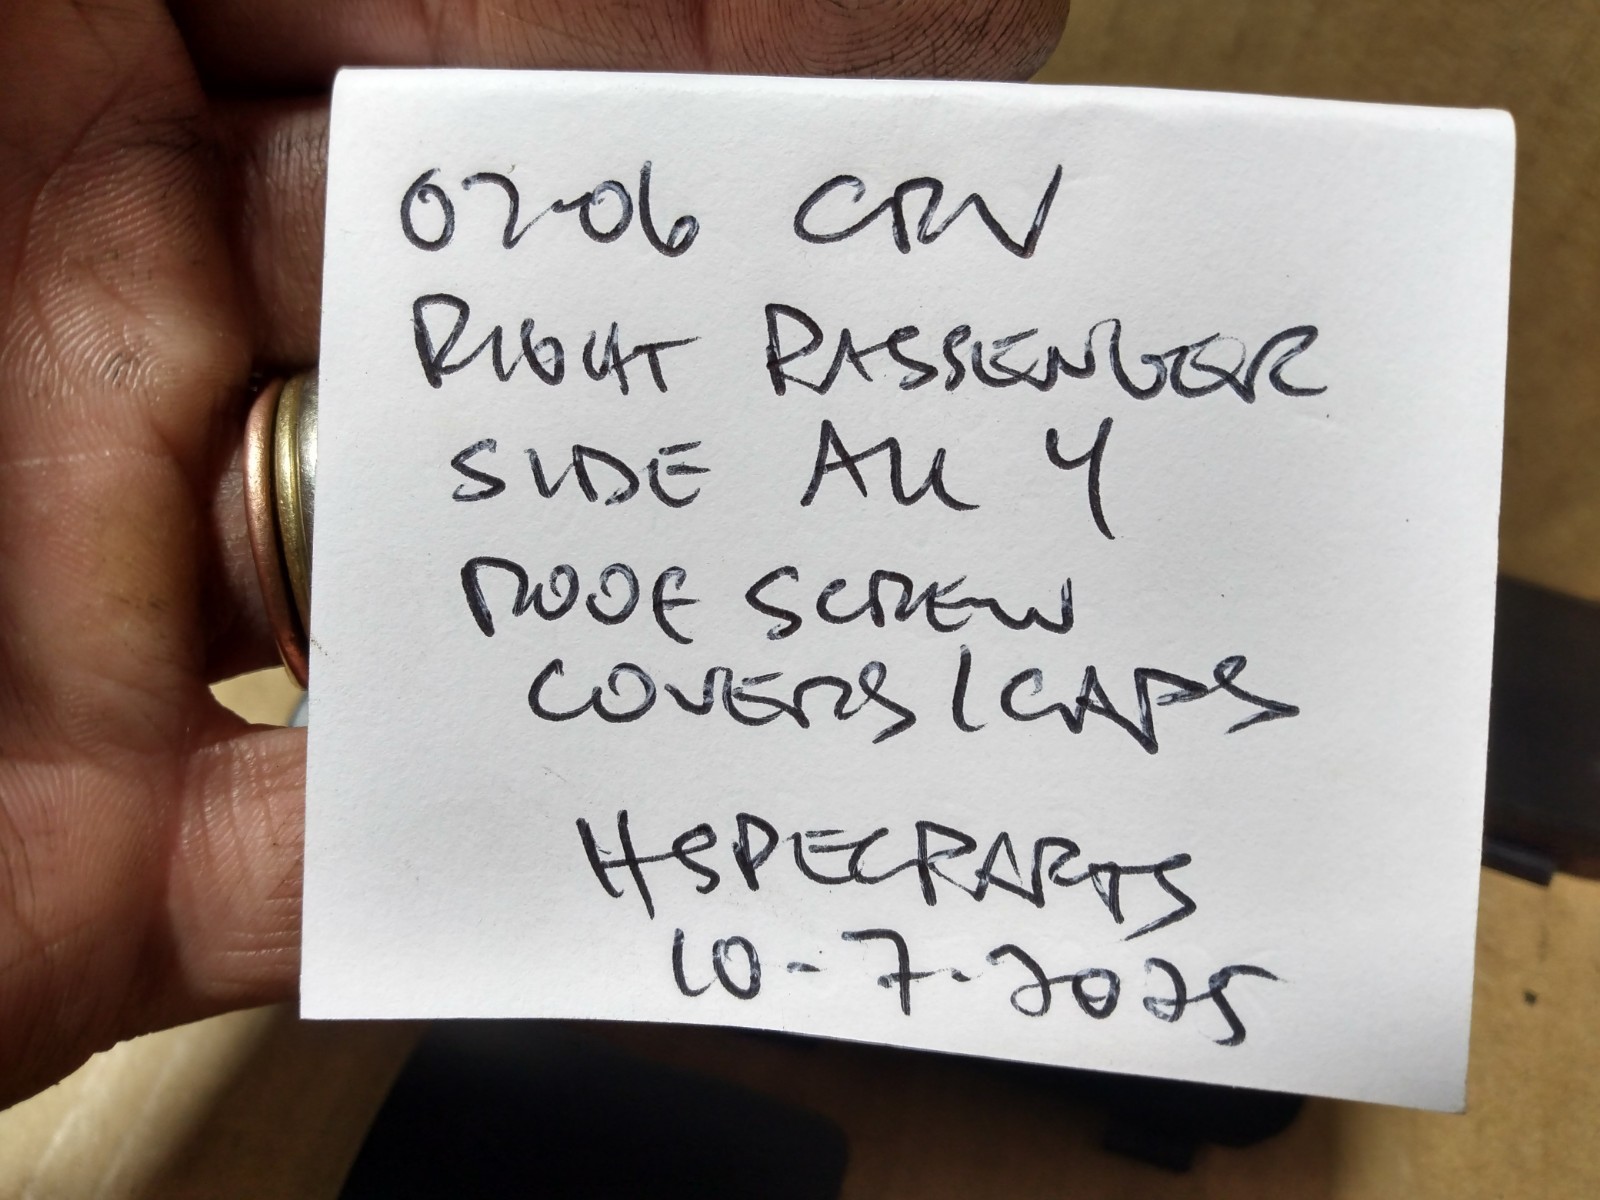 02-06 CRV
RIGHT PASSENGER
SIDE ALL 4
ROOF SCREW
COVERS/CAPS
HSPECPARTS
10-7-2025